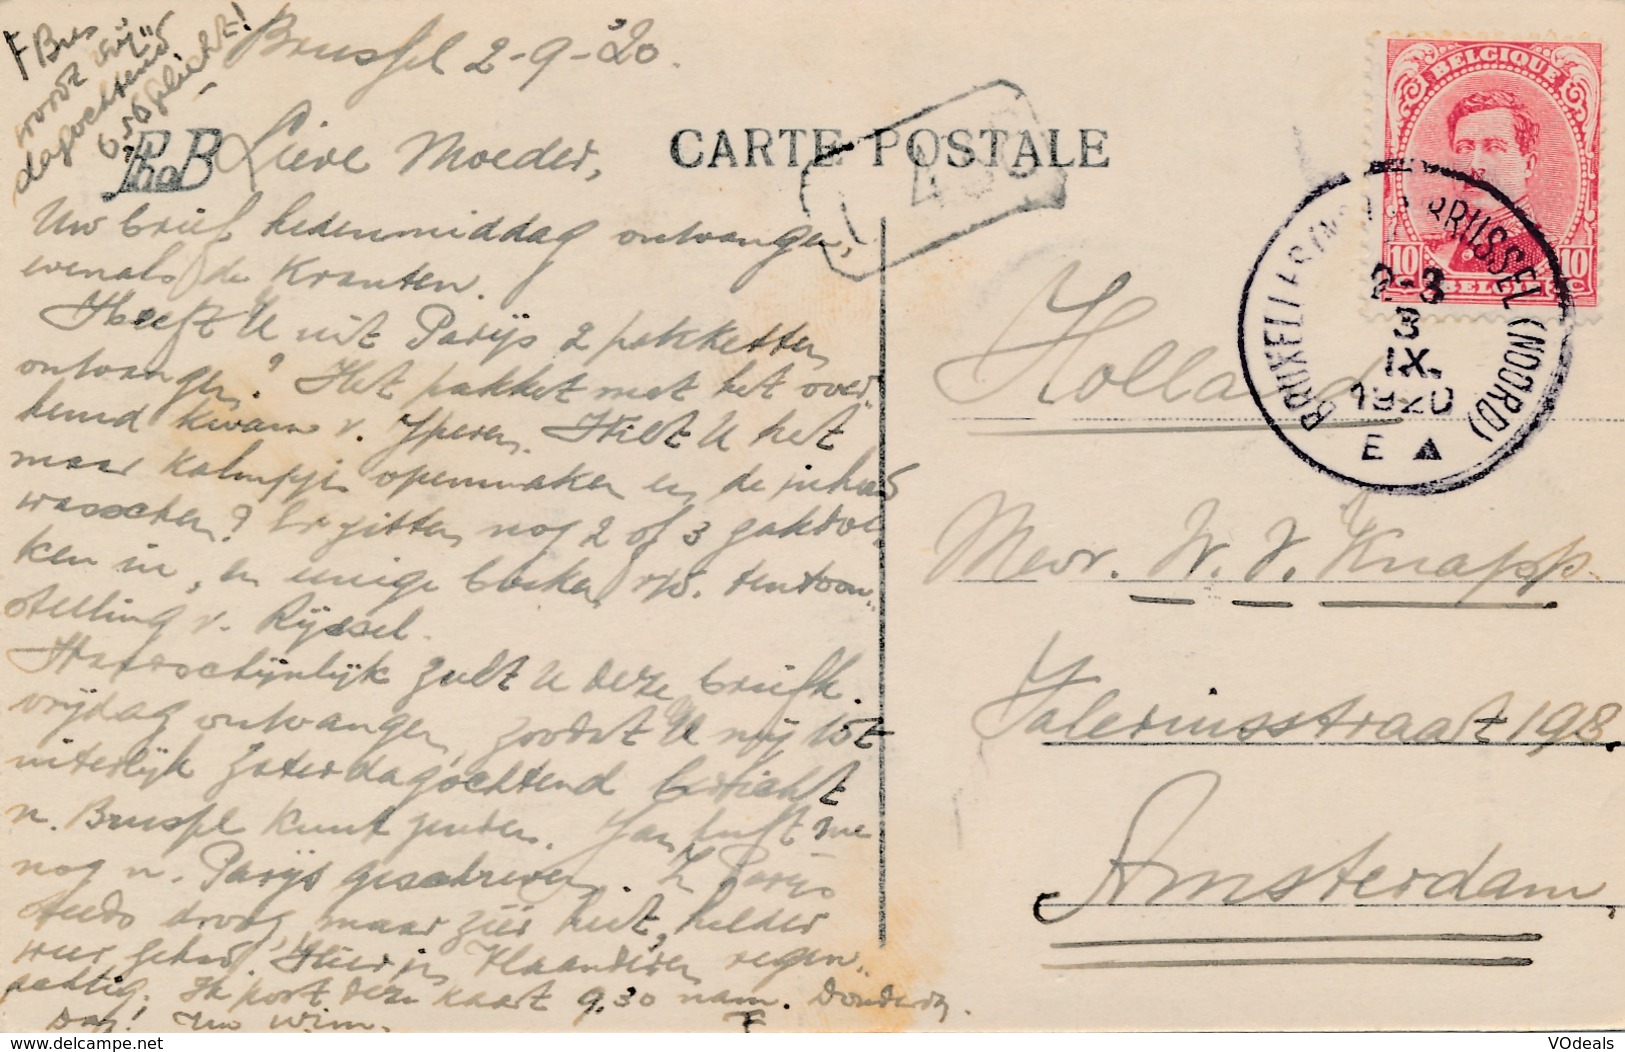 F Bus
wordt vrij
dagochtend
6.30 gelicht!
Brussel 2-9-'20.
PhoB
CARTE POSTALE
Lieve Moeder,
Uw brief hedenmiddag ontvangen,
evenals de Kranten.
Heeft U uit Parijs 2 pakketten
ontvangen? Het pakket met het over-
hemd kwam v. Yperen. Wilt U het
maar kalmpjes openmaken en de inhoud
wasschen? Er zitten nog 2 of 3 zakdoe-
ken in, en eenige boeken v/d. tentoon-
stelling v. Rijssel.
Waarschijnlijk zult U deze briefk.
vrijdag ontvangen, zoodat U mij tot
uiterlijk Zaterdagochtend bericht
n. Brussel kunt zenden. Jan heeft me
nog n. Parijs geschreven. In Parijs
steeds droog, maar zéér heet, helder
weer gehad. Hier in Vlaanderen regen-
achtig. Ik post deze kaart 9.30 nam. Donderdg.
Dag! Uw Wim.
F
BELGIQUE
10 10
BELGIE
BRUXELLES (NORD) BRUSSEL (NOORD)
2-3
3
IX
1920
E
Holland
Mevr. W. V. Knapp
Valeriusstraat 198.
Amsterdam,
VOdeals
www.delcampe.net